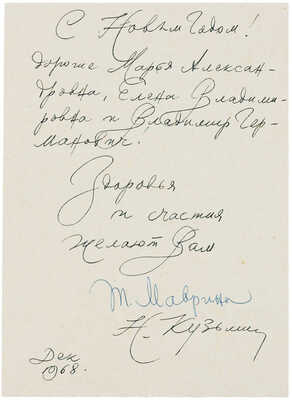 С Новым Годом!
дорогие Марья Алексан-
дровна, Елена Владими-
ровна и Владимир Гер-
манович.
Здоровья
и счастия
желают Вам
Т. Маврина
Н. Кузьмин
Дек
1968.